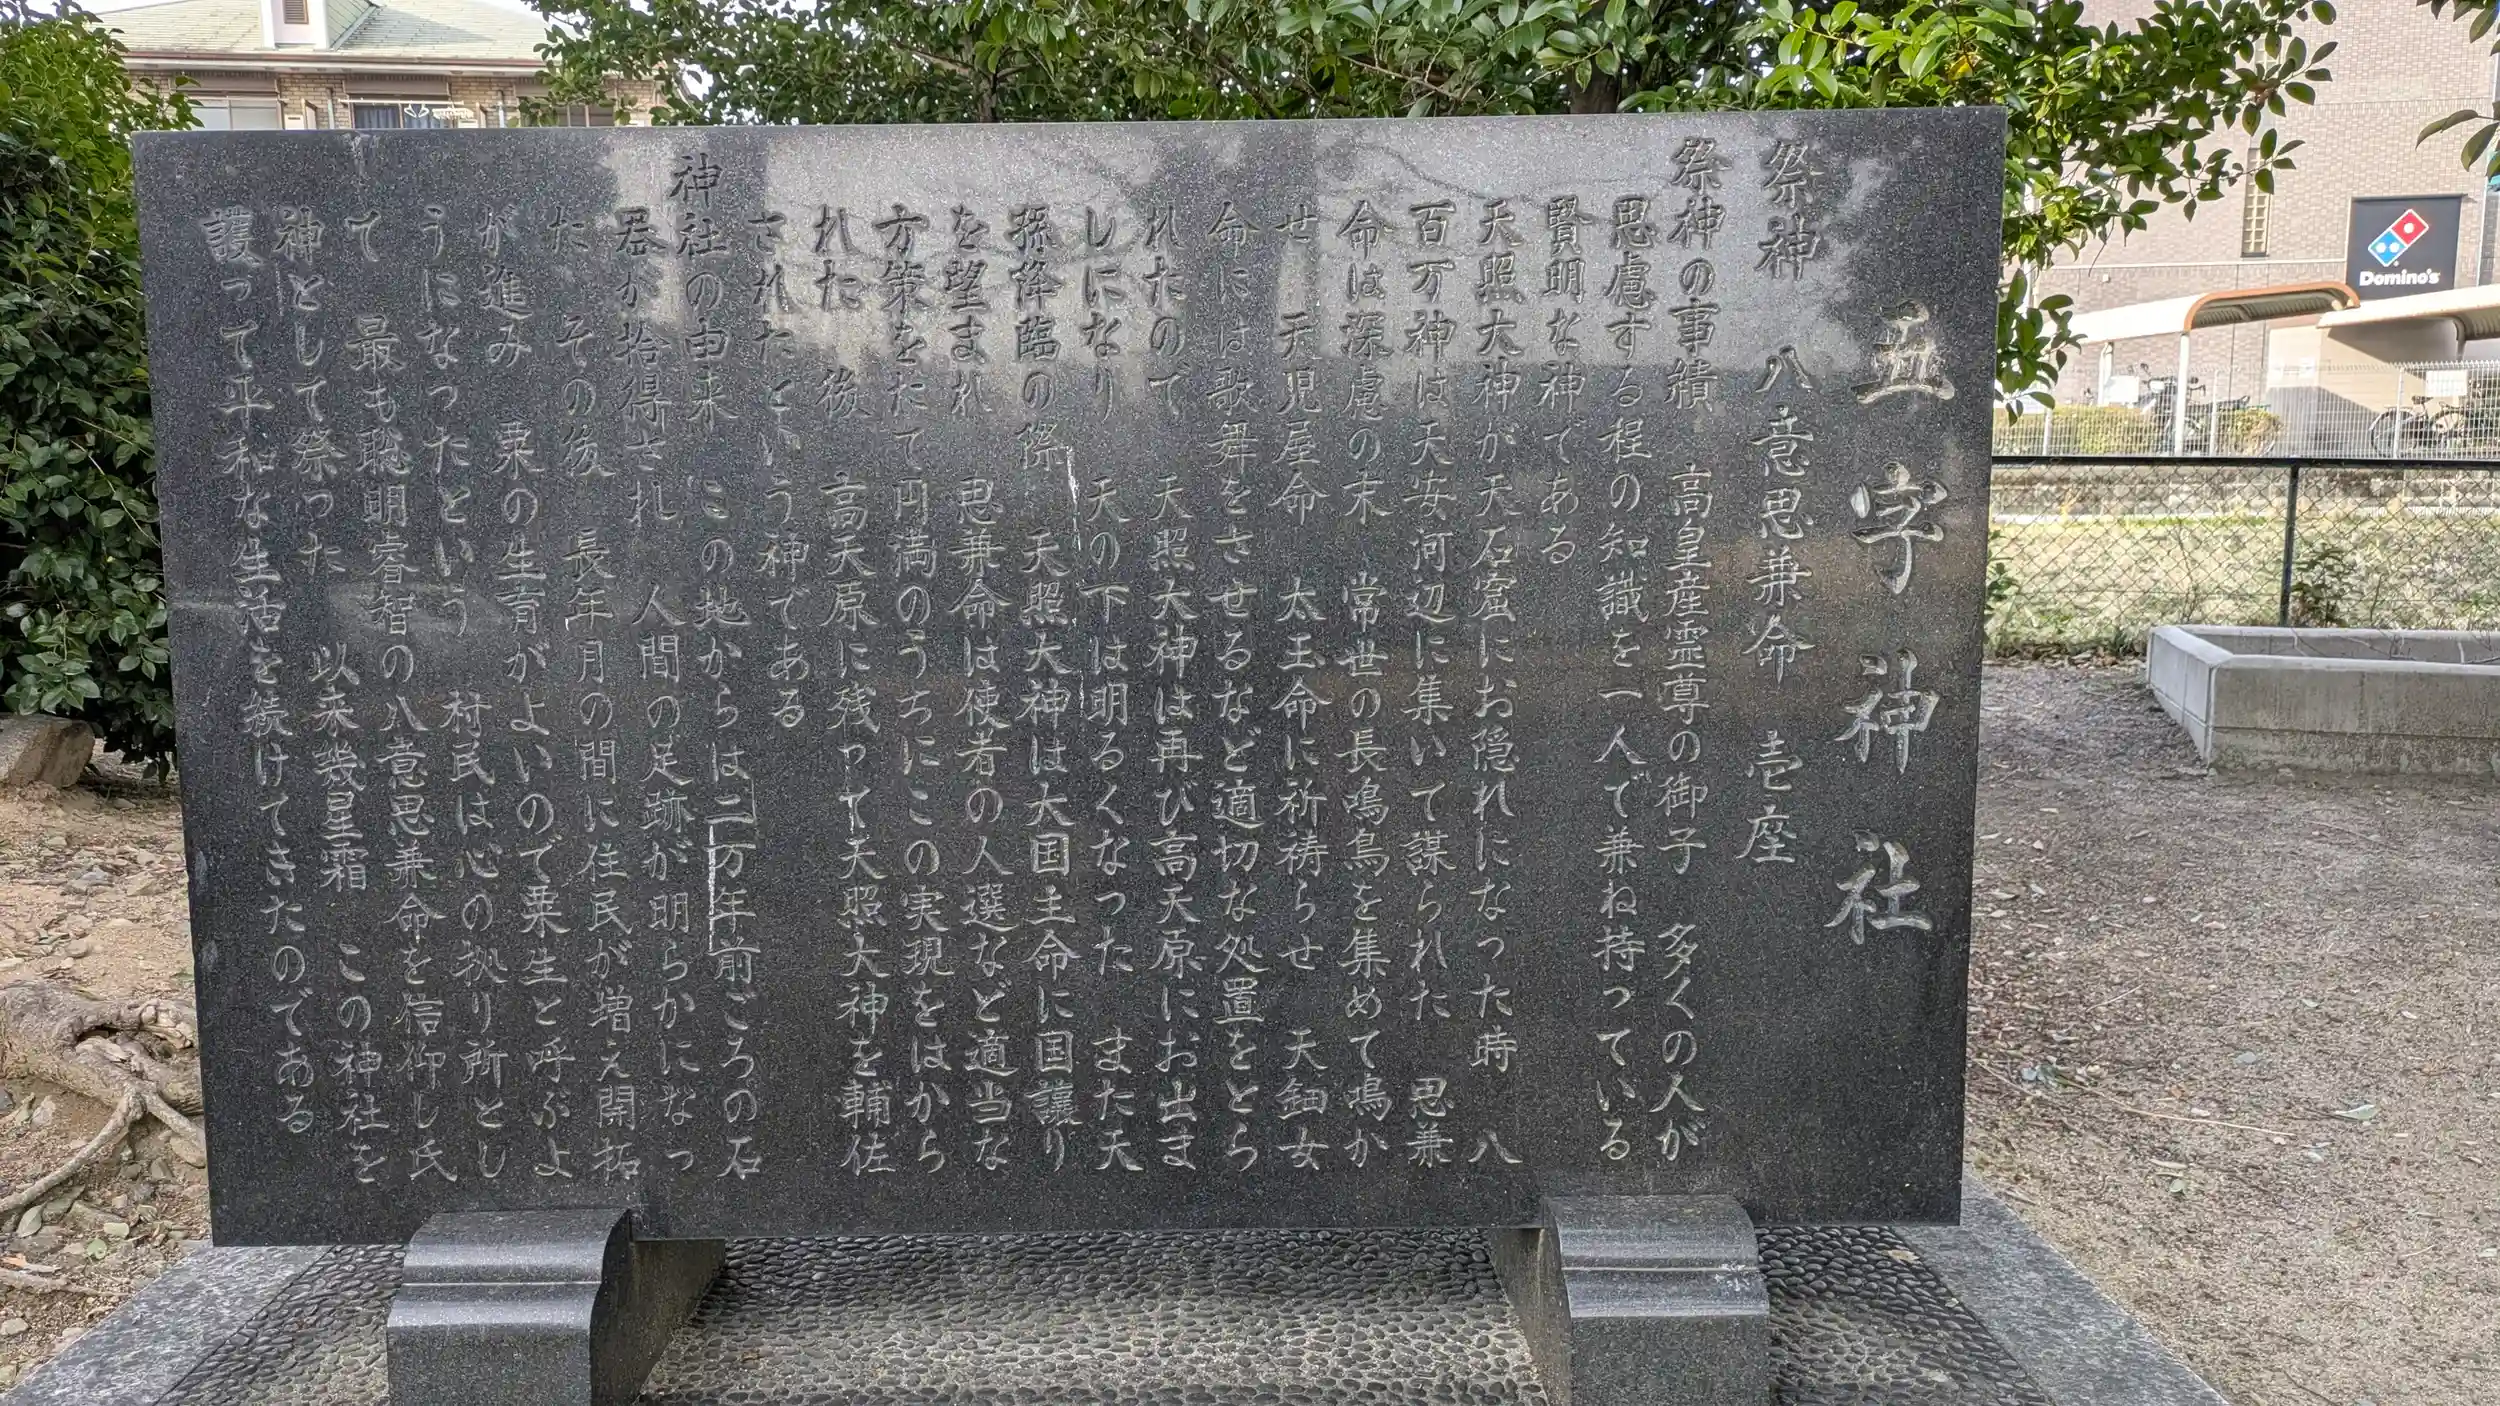 五字神社
祭神　八意思兼命　壱座
祭神の事績　高皇産霊尊の御子　多くの人が
思慮する程の知識を一人で兼ね持っている
賢明な神である
天照大神が天石窟にお隠れになった時　八
百万神は天安河辺に集いて謀られた　思兼
命は深慮の末　常世の長鳴鳥を集めて鳴か
せ　天児屋命　太玉命に祈祷らせ　天鈿女
命には歌舞をさせるなど適切な処置をとら
れたので　天照大神は再び高天原にお出ま
しになり　天の下は明るくなった　また天
孫降臨の際　天照大神は大国主命に国譲り
を望まれ　思兼命は使者の人選など適当な
方策をたて円満のうちにこの実現をはから
れた　後　高天原に残って天照大神を輔佐
されたという神である
神社の由来　この地からは二万年前ごろの石
器が拾得され　人間の足跡が明らかになっ
た　その後　長年月の間に住民が増え開拓
が進み　粟の生育がよいので粟生と呼ぶよ
うになったという　村民は心の拠り所とし
て　最も聡明睿智の八意思兼命を信仰し氏
神として祭った　以来幾星霜　この神社を
護って平和な生活を続けてきたのである
Domino's